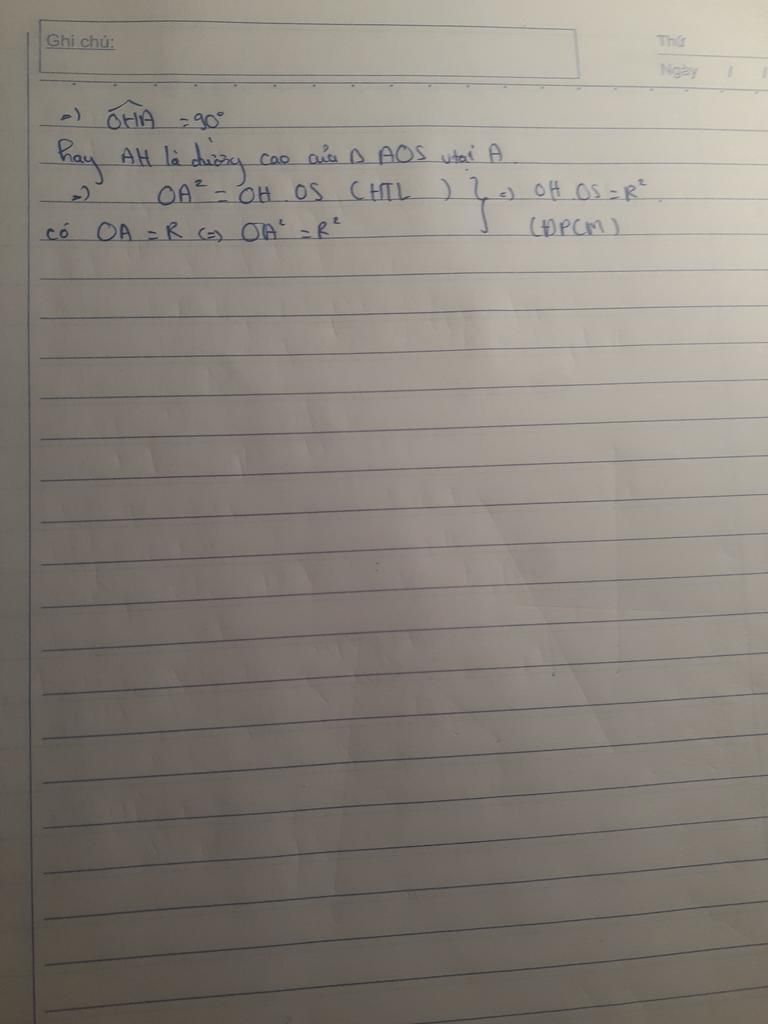 Ghi chú:
Thứ
Ngày / /
=) OHA = 90°
hay AH là đường cao của Δ AOS vtại A
=) OA² = OH.OS (HTL) } =) OH.OS = R²
có OA = R <=> OA² = R² (ĐPCM)